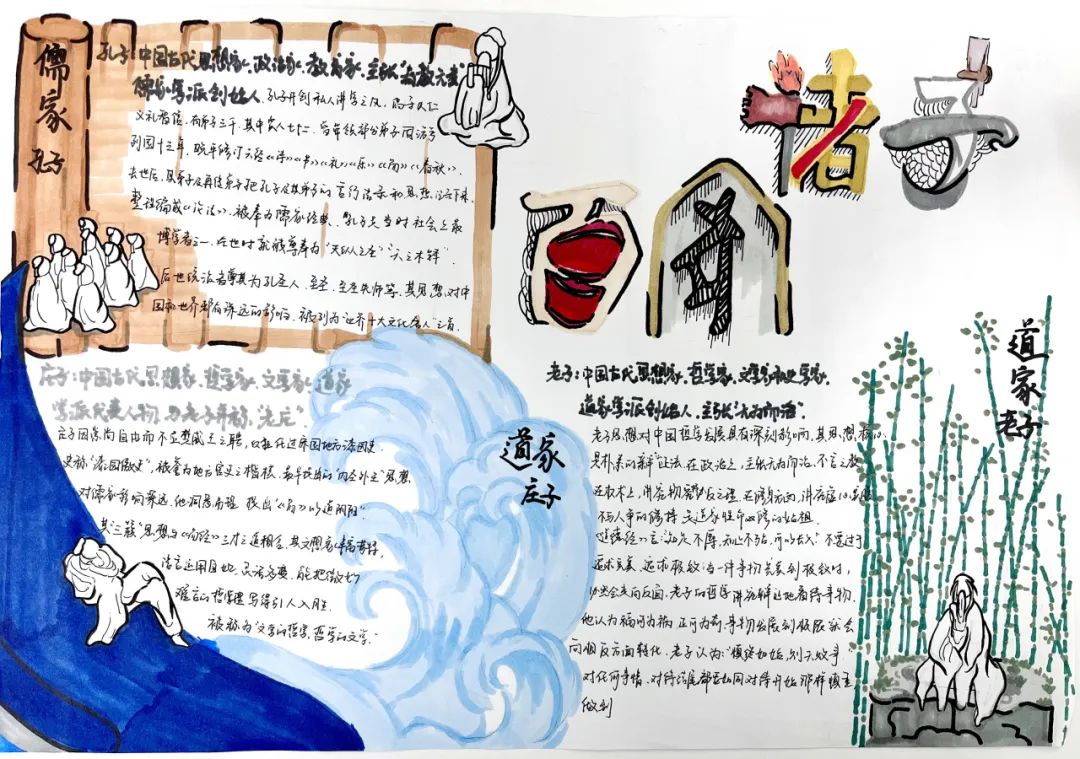 诸子
百家
儒家
孔子
孔子:中国古代思想家、政治家、教育家、主张"有教无类"
儒家学派创始人、孔子开创私人讲学之风,倡导仁
义礼智信,有弟子三千,其中贤人七十二,曾带领部分弟子周游
列国十三年,晚年修订六经《诗》《书》《礼》《乐》《易》《春秋》。
去世后,其弟子及再传弟子把孔子及其弟子的言行语录和思想记录下来,
整理编成《论语》。被奉为儒家经典、孔子是当时社会上最
博学者之一,在世时就被尊奉为"天纵之圣""天之木铎"。
后世统治者尊其为孔圣人、至圣、至圣先师等,其思想对中
国和世界都有深远的影响,被列为"世界十大文化名人"之首。
庄子:中国古代思想家、哲学家、文学家、道家
学派代表人物,与老子并称"老庄"
庄子因崇尚自由而不应楚威王之聘,仅担任过宋国地方漆园吏
史称"漆园傲吏",被誉为地方官吏之楷模,最早提出的"内圣外王"思想
对儒家影响深远,他洞悉易理,指出《易》以道阴阳"
其"三籁"思想与《易经》三才之道相合,其文想象
语言运用自如,灵活多变,能把微妙
难言的哲理写得引人入胜,
被称为"文学的哲学,哲学的文学"
道家
庄子
老子:中国古代思想家、哲学家、文学家和史学家,
道家学派创始人、主张"无为而治"
老子思想对中国哲学发展具有深刻影响,其思想核心
是朴素的辩证法,在政治上,主张无为而治、不言之教
在权术上,讲究物极必反之理,在修身方面,讲究
不与人争的修持,是道家性命双修的始祖
《道德经》言:知足不辱,知止不殆,可以长久"不要过于
追求完美,追求极致,当一件事物完美到极致时,
势必会走向反面,老子的哲学讲究辩证地看待事物,
他认为祸可为福,正可为奇,事物发展到极限就会
向相反方面转化,老子认为:"慎终如始,则无败事"
对任何事情,对待结尾都要如同对待开始那样慎重
做到
道家
老子